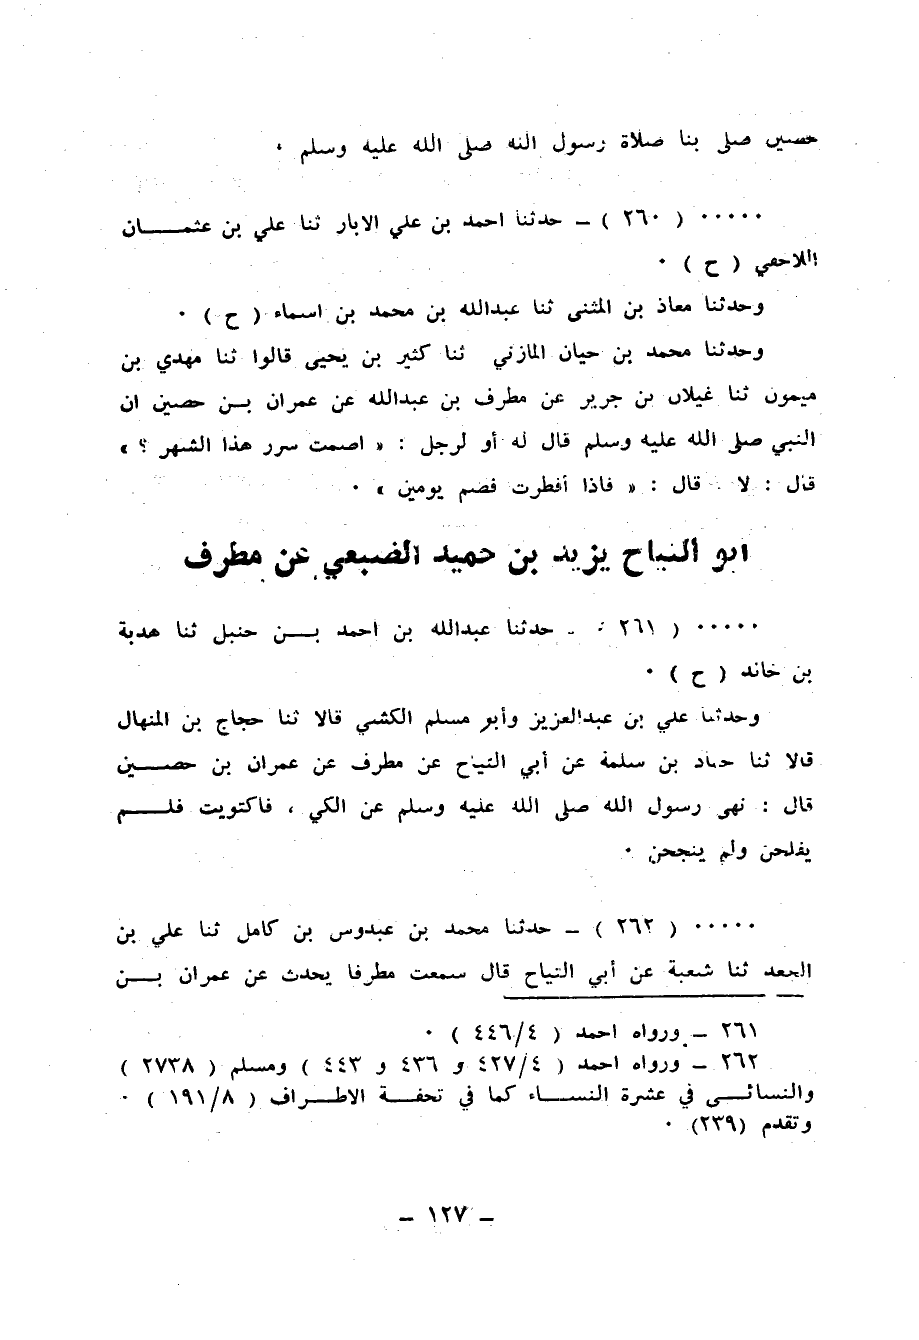 حصين صلى بنا صلاة رسول الله صلى الله عليه وسلم ٠
٠٠٠٠٠ ( ٢٦٠ ) ـ حدثنا احمد بن علي الابار ثنا علي بن عثمـــــان
اللاحقي ( ح ) ٠
وحدثنا معاذ بن المثنى ثنا عبدالله بن محمد بن اسماء ( ح ) ٠
وحدثنا محمد بن حيان المازني ثنا كثير بن يحيى قالوا ثنا مهدي بن
ميمون ثنا غيلان بن جرير عن مطرف بن عبدالله عن عمران بــن حصين ان
النبي صلى الله عليه وسلم قال له أو لرجل : « اصمت سرر هذا الشهر ؟ »
قال : لا ٠ قال : « فاذا أفطرت فصم يومين » ٠
ابو التياح يزيد بن حميد الضبعي عن مطرف
٠٠٠٠٠ ( ٢٦١ ) ـ حدثنا عبدالله بن احمد بـــن حنبل ثنا هدبة
بن خالد ( ح ) ٠
وحدثنا علي بن عبدالعزيز وأبو مسلم الكشي قالا ثنا حجاج بن المنهال
قالا ثنا حماد بن سلمة عن أبي التياح عن مطرف عن عمران بن حصـــين
قال : نهى رسول الله صلى الله عليه وسلم عن الكي ، فاكتويت فلـــم
يفلحن ولم ينجحن ٠
٠٠٠٠٠ ( ٢٦٢ ) ـ حدثنا محمد بن عبدوس بن كامل ثنا علي بن
الجعد ثنا شعبة عن أبي التياح قال سمعت مطرفا يحدث عن عمران بـــن
٢٦١ ـ ورواه احمد ( ٤٤٦/٤ ) ٠
٢٦٢ ـ ورواه احمد ( ٤٢٧/٤ و ٤٣٦ و ٤٤٣ ) ومسلم ( ٢٧٣٨ )
والنسائـــي في عشرة النســـاء كما في تحفـــة الاطـــراف ( ١٩١/٨ ) ٠
وتقدم (٢٣٩) ٠
ـ ١٢٧ ـ